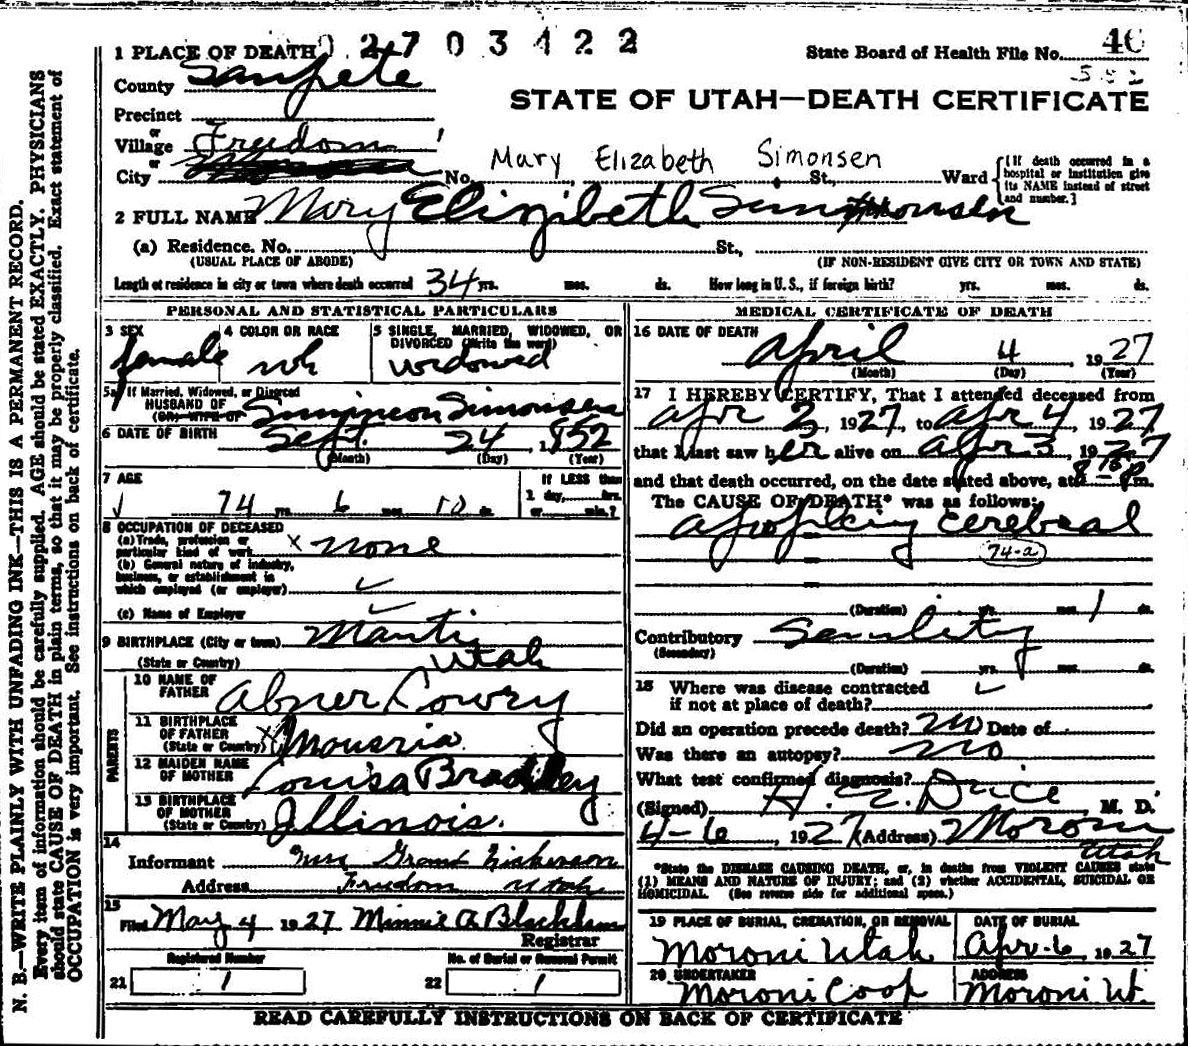 N. B.—WRITE PLAINLY WITH UNFADING INK—THIS IS A PERMANENT RECORD.
Every item of information should be carefully supplied. AGE should be stated EXACTLY. PHYSICIANS
should state CAUSE OF DEATH in plain terms, so that it may be properly classified. Exact statement of
OCCUPATION is very important. See instructions on back of certificate.
1 PLACE OF DEATH 0 2 7 0 3 4 2 2
State Board of Health File No. 46
County Sanpete
STATE OF UTAH—DEATH CERTIFICATE
Precinct
or
Village Freedom
or
City No. St., Ward
Mary Elizabeth Simonsen
[If death occurred in a
hospital or institution give
its NAME instead of street
and number.]
2 FULL NAME Mary Elizibeth Simonsen
(a) Residence. No. St.,
(USUAL PLACE OF ABODE) (IF NON-RESIDENT GIVE CITY OR TOWN AND STATE)
Length of residence in city or town where death occurred 34 yrs. mos. ds. How long in U. S., if foreign birth? yrs. mos. ds.
PERSONAL AND STATISTICAL PARTICULARS
3 SEX
female
4 COLOR OR RACE
wh
5 SINGLE, MARRIED, WIDOWED, OR
DIVORCED (Write the word)
widowed
5a If Married, Widowed, or Divorced
HUSBAND OF
(OR) WIFE OF
Simonsen
6 DATE OF BIRTH Sept. 24, 1852
(Month) (Day) (Year)
7 AGE
74 yrs. 6 mos. 10 ds.
If LESS than
1 day, hrs.
or min.?
8 OCCUPATION OF DECEASED
(a) Trade, profession or
particular kind of work x none
(b) General nature of industry,
business, or establishment in
which employed (or employer) ✓
(c) Name of Employer ✓
9 BIRTHPLACE (City or town) Manti
(State or Country) Utah
PARENTS
10 NAME OF
FATHER Abner Lowry
11 BIRTHPLACE
OF FATHER
(State or Country) x Mousria
12 MAIDEN NAME
OF MOTHER Louisa Bradley
13 BIRTHPLACE
OF MOTHER
(State or Country) Illinois.
14
Informant Mrs Grant
Address Freedom Utah
15
Filed May 4 1927 Minnie A Blackham
Registrar
Registered Number
21 1
No. of Burial or Removal Permit
22 1
MEDICAL CERTIFICATE OF DEATH
16 DATE OF DEATH
April 4, 1927
(Month) (Day) (Year)
17 I HEREBY CERTIFY, That I attended deceased from
Apr 2, 1927, to Apr 4 1927
that I last saw her alive on Apr 3, 1927
and that death occurred, on the date stated above, at 8 15 P m.
The CAUSE OF DEATH* was as follows:
Apoplexy Cerebral
74-a
(Duration) yrs. mos. 1 ds.
Contributory Senility
(Secondary)
(Duration) yrs. mos. ds.
18 Where was disease contracted
if not at place of death? ✓
Did an operation precede death? no Date of
Was there an autopsy? no
What test confirmed diagnosis?
(Signed) , M. D.
4-6, 1927 (Address) Moroni
Utah
*State the DISEASE CAUSING DEATH, or, in deaths from VIOLENT CAUSES state
(1) MEANS AND NATURE OF INJURY; and (2) whether ACCIDENTAL, SUICIDAL OR
HOMICIDAL. (See reverse side for additional space.)
19 PLACE OF BURIAL, CREMATION, OR REMOVAL
Moroni Utah
DATE OF BURIAL
Apr-6, 1927
20 UNDERTAKER
Moroni Coop
ADDRESS
Moroni Ut.
READ CAREFULLY INSTRUCTIONS ON BACK OF CERTIFICATE